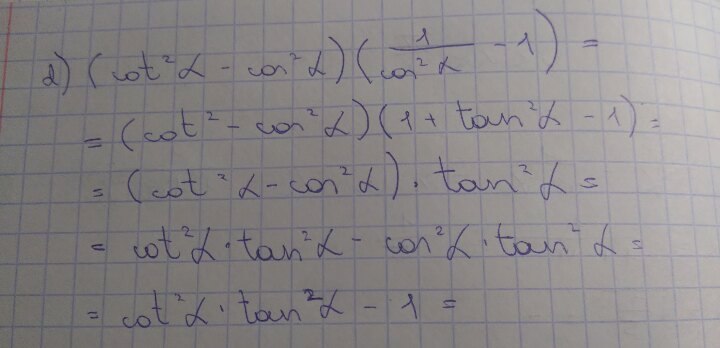 d) (cot²α - cos²α)(1/cos²α - 1) =
= (cot² - cos²α)(1 + tan²α - 1) =
= (cot²α - cos²α) · tan²α =
= cot²α · tan²α - cos²α · tan²α =
= cot²α · tan²α - 1 =